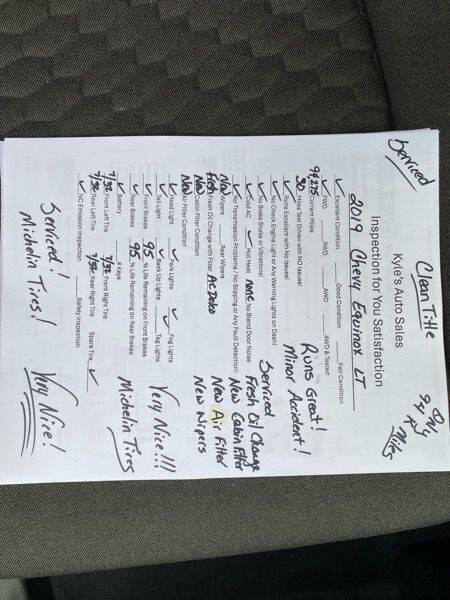 Clean Title
Serviced
Only
94 K
Miles
Inspection for You Satisfaction
Kyle's Auto Sales
2019 Chevy Equinox LT
✓ Excellent Condition ____ Good Condition ____ Fair Condition
✓ FWD ____ RWD ____ AWD ____ 4WD & Tested
94,275 Current Miles
30 Miles Test Driven with NO Issues!
Runs Great!
✓ Runs Excellent with No Issues!
Minor Accident!
✓ No Check Engine Light or Any Warning Lights on Dash!
✓ No Brake Shake or Vibrations!
✓ Cold AC ✓ Hot Heat none No Blend Door Noise
✓ No Transmission Problems / No Slipping or Any Fault Detection!
New Wipers ____ Rear Wipers
Fresh Fresh Oil Change with Filter AC Delco
New Cabin Filter Condition
New Air Filter Condition
Serviced
Fresh Oil Change
New Cabin Filter
New Air Filter
New Wipers
✓ Head Light ✓ Park Lights ✓ Fog Lights
✓ Tail Light ✓ Back Up Lights ✓ Tag Lights
✓ Front Brakes 95 % Life Remaining on Front Brakes
✓ Rear Brakes 95 % Life Remaining on Rear Brakes
Very Nice!!!
✓ Battery ____ # Keys
Michelin Tires
7/32 Front Left Tire 7/32 Front Right Tire
7/32 Rear Left Tire 7/32 Rear Right Tire Spare Tire ✓
✓ NC Emission Inspection ____ Safety Inspection
Serviced!
Michelin Tires!
Very Nice!